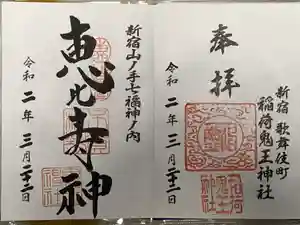 奉拝
新宿 歌舞伎町
稲荷鬼王神社
令和二年三月二十二日
新宿山ノ手七福神ノ内
恵比寿神
令和二年三月二十二日